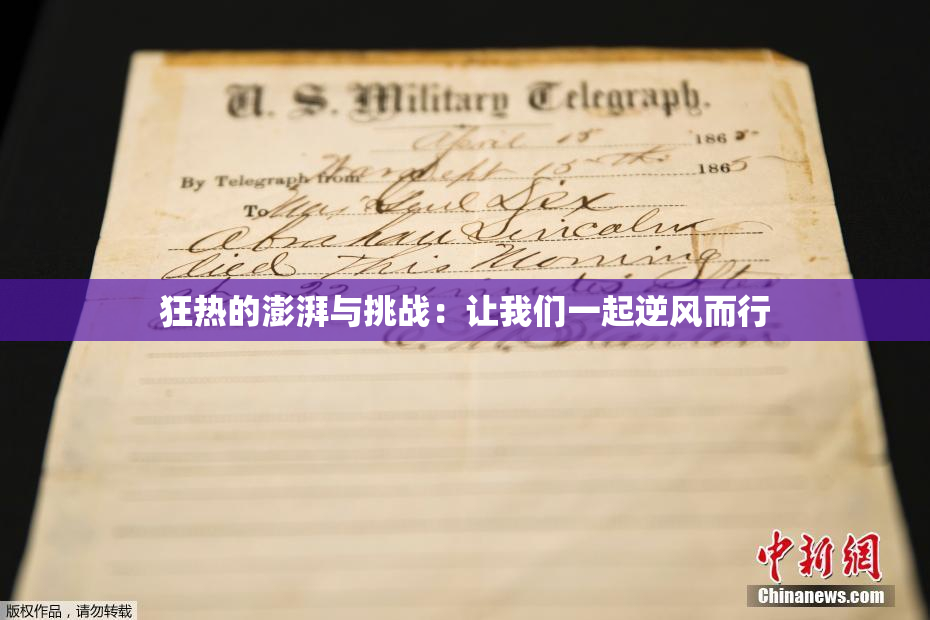 U. S. Military Telegraph.
April 15 1865
By Telegraph from War Dept 15th 1865
To Maj Genl Dix
Abraham Lincoln
died This Morning
at 22 minutes after
狂热的澎湃与挑战：让我们一起逆风而行
E. M. Stanton
中新網
Chinanews.com
版权作品，请勿转载